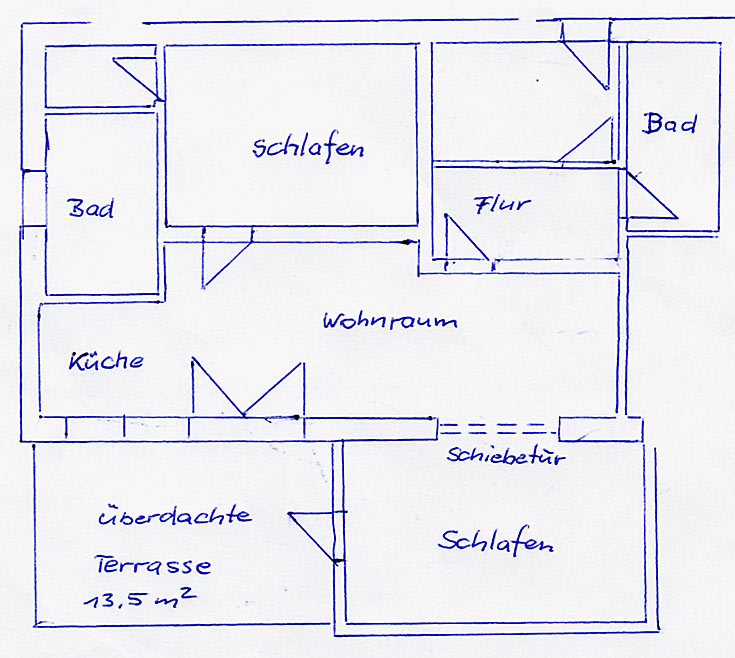 Schlafen
Bad
Bad
Flur
Wohnraum
Küche
Schiebetür
überdachte
Terrasse
13,5 m²
Schlafen